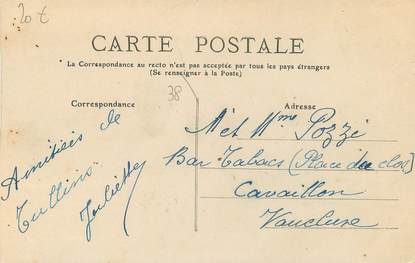 20 €
CARTE POSTALE
La Correspondance au recto n'est pas acceptée par tous les pays étrangers
(Se renseigner à la Poste)
38
Correspondance
Amitiés de
Tullins
Juliette
Adresse
M et Mme Pozzi
Bar Tabacs (Place du clos)
Cavaillon
Vaucluse